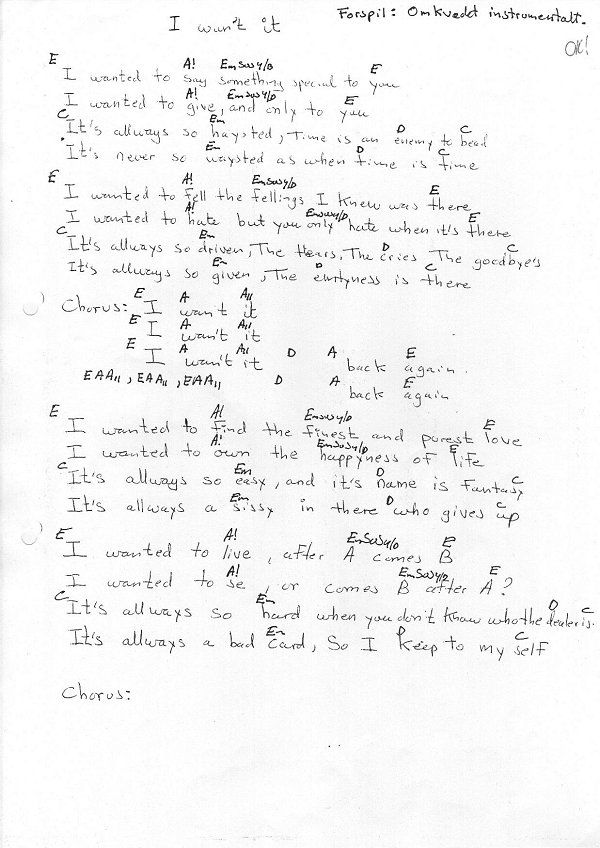 I wan't it
Forspil: Omkvædet instrumentalt.
OK!
E A! EmSus4/D E
I wanted to say something special to you
A! EmSus4/D E
I wanted to give, and only to you
C Em D C
It's allways so haysted, Time is an enemy to bead
Em D C
It's never so waysted as when time is time
E A! EmSus4/D E
I wanted to fell the fellings I knew was there
A! EmSus4/D E
I wanted to hate but you only hate when it's there
C Em D C
It's allways so driven, The tears, The cries The goodbye's
Em D C
It's allways so given, The emtyness is there
E A A11
Chorus: I wan't it
E A A11
I wan't it
E A A11 D A E
I wan't it back again.
EAA11, EAA11, EAA11 D A E
back again
E A! EmSus4/D E
I wanted to find the finest and purest love
A! EmSus4/D E
I wanted to own the happyness of life
C Em D C
It's allways so easy, and it's name is Fantasy
Em D C
It's allways a sissy in there who gives up
E A! EmSus4/D E
I wanted to live, after A comes B
A! EmSus4/D E
I wanted to se, or comes B after A?
C Em D C
It's allways so hard when you don't know who the dealer is.
Em D C
It's allways a bad card, So I keep to my self
Chorus: